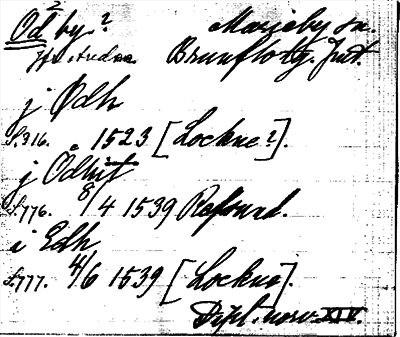 Od by? Marieby sn.
Brunflo tg. Jmt.
j Ødh
S. 316. 1523 [Lockne?].
j Odhut
S. 776. 8/4 1539 Refsund.
i Edh
S. 777. 4/6 1539 [Lockne].
Dipl. norv. XIV.